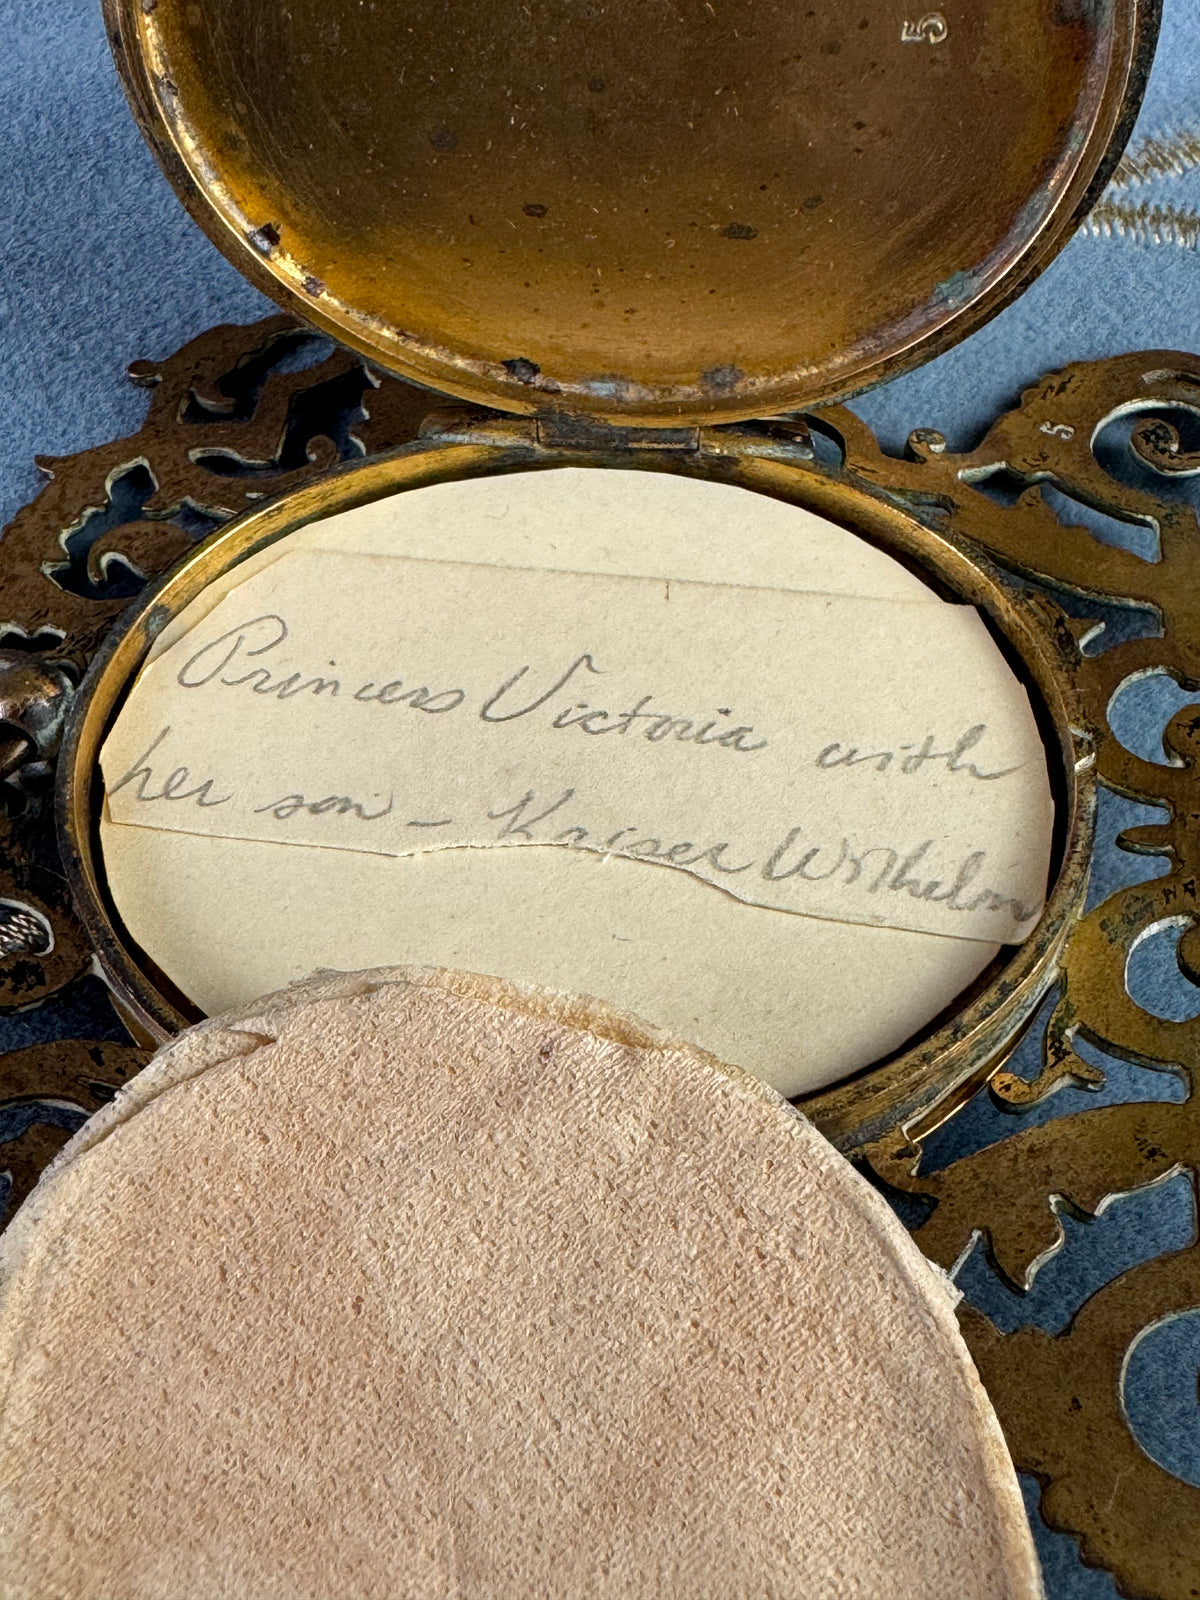 5
5
Princess Victoria with
her son – Kaiser Wilhelm